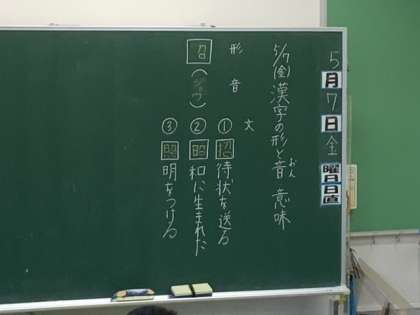 5月7日金曜日日直
5/7(金)漢字の形と音 意味
おん
形
音
文
召
(ショウ)
①招待状を送る
②昭和に生まれた
③照明をつける